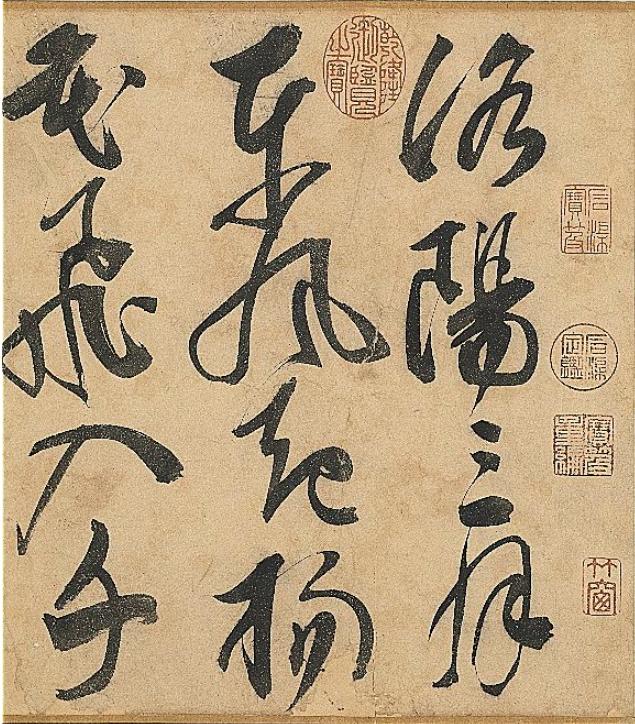 洛陽三月
東風起楊
花飛入千
乾隆御覽之寶
石渠寶笈
石渠定鑑
寶笈重編
竹窗